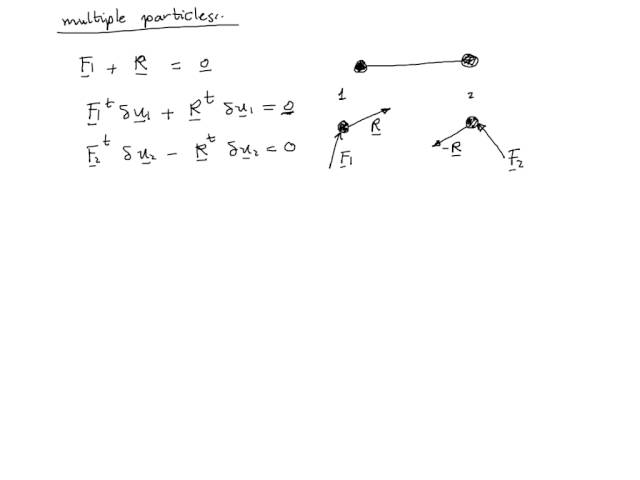 multiple particles..
F1 + R = 0
1
2
F1^t δu1 + R^t δu1 = 0
R
F2^t δu2 − R^t δu2 = 0
-R
F1
F2